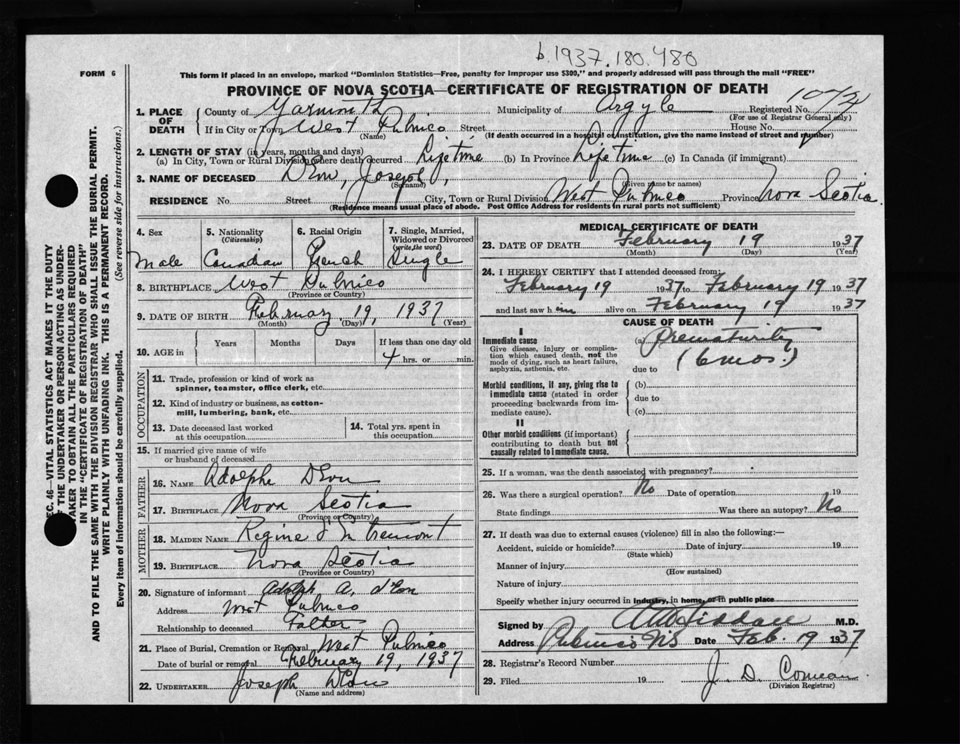 b.1937.180.480
FORM 6
This form if placed in an envelope, marked "Dominion Statistics—Free, penalty for improper use $300," and properly addressed will pass through the mail "FREE"
PROVINCE OF NOVA SCOTIA—CERTIFICATE OF REGISTRATION OF DEATH
1. PLACE OF DEATH County of Yarmouth Municipality of Argyle Registered No.
(For use of Registrar General only)
If in City or Town West Pubnico Street House No.
(Name) (If death occurred in a hospital or institution, give the name instead of street and number)
2. LENGTH OF STAY (in years, months and days)
(a) In City, Town or Rural Division where death occurred Lifetime (b) In Province Lifetime (c) In Canada (if immigrant)
3. NAME OF DECEASED D'Eon, Joseph,
(Surname) (Given name or names)
RESIDENCE No. Street City, Town or Rural Division West Pubnico Province Nova Scotia
(Residence means usual place of abode. Post Office Address for residents in rural parts not sufficient)
4. Sex 5. Nationality (Citizenship) 6. Racial Origin 7. Single, Married, Widowed or Divorced (write the word)
Male Canadian French Single
8. BIRTHPLACE West Pubnico
(Province or Country)
9. DATE OF BIRTH February 19, 1937
(Month) (Day) (Year)
10. AGE in Years Months Days If less than one day old
4 hrs. or min.
OCCUPATION
11. Trade, profession or kind of work as spinner, teamster, office clerk, etc.
12. Kind of industry or business, as cotton-mill, lumbering, bank, etc.
13. Date deceased last worked at this occupation
14. Total yrs. spent in this occupation
15. If married give name of wife or husband of deceased
FATHER
16. NAME Adolphe D'Eon
17. BIRTHPLACE Nova Scotia
(Province or Country)
MOTHER
18. MAIDEN NAME Regine
19. BIRTHPLACE Nova Scotia
(Province or Country)
20. Signature of informant Adolph A. d'Eon
Address West Pubnico
Relationship to deceased Father
21. Place of Burial, Cremation or Removal West Pubnico
Date of burial or removal February 19, 1937
22. UNDERTAKER Joseph D'Eon
(Name and address)
MEDICAL CERTIFICATE OF DEATH
23. DATE OF DEATH February 19 1937
(Month) (Day) (Year)
24. I HEREBY CERTIFY that I attended deceased from:
February 19 1937 to February 19 1937
and last saw him alive on February 19 1937
CAUSE OF DEATH
I
Immediate cause
Give disease, injury or complication which caused death, not the mode of dying, such as heart failure, asphyxia, asthenia, etc.
(a) Prematurity
(6 mos.)
due to
Morbid conditions, if any, giving rise to immediate cause (stated in order proceeding backwards from immediate cause).
(b)
due to
(c)
II
Other morbid conditions (if important) contributing to death but not causally related to immediate cause.
25. If a woman, was the death associated with pregnancy?
26. Was there a surgical operation? No Date of operation 19
State findings Was there an autopsy? No
27. If death was due to external causes (violence) fill in also the following:—
Accident, suicide or homicide? Date of injury 19
(State which)
Manner of injury
(How sustained)
Nature of injury
Specify whether injury occurred in industry, in home, or in public place
Signed by M.D.
Address Pubnico NS Date Feb. 19 1937
28. Registrar's Record Number
29. Filed 19 J. D. Comeau
(Division Registrar)
SEC. 46—VITAL STATISTICS ACT MAKES IT THE DUTY
OF THE UNDERTAKER OR PERSON ACTING AS UNDERTAKER TO OBTAIN ALL THE PARTICULARS REQUIRED
IN THE "CERTIFICATE OF REGISTRATION OF DEATH"
AND TO FILE THE SAME WITH THE DIVISION REGISTRAR WHO SHALL ISSUE THE BURIAL PERMIT.
WRITE PLAINLY WITH UNFADING INK. THIS IS A PERMANENT RECORD.
Every item of information should be carefully supplied. (See reverse side for instructions.)